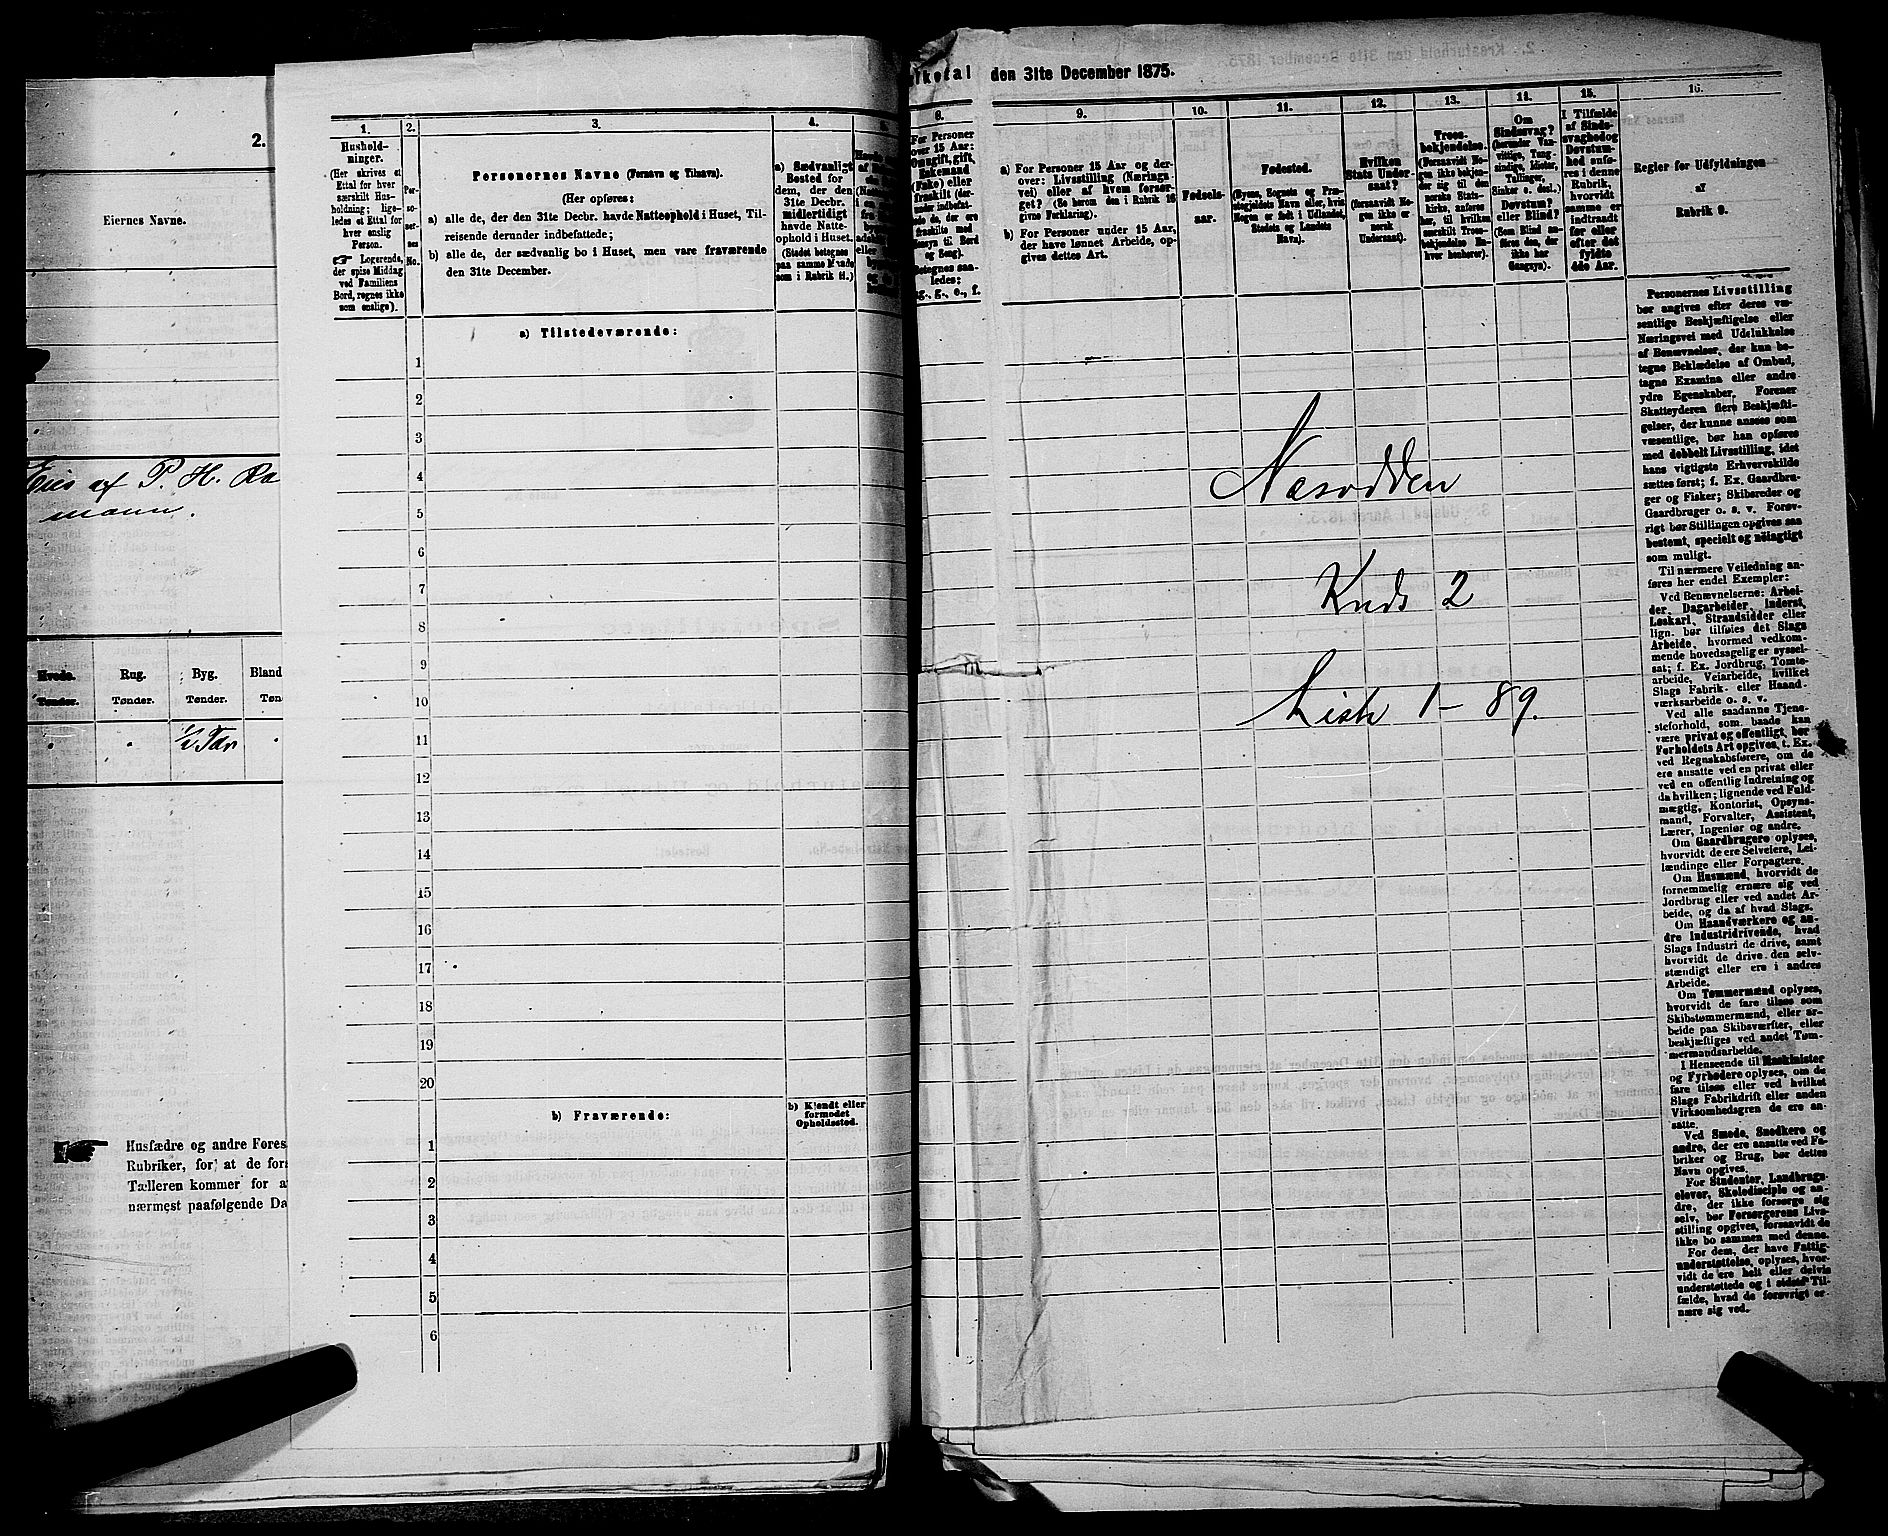 2.
Eiernes Navne.
Eies af P. H.
mann.
Hvede. Rug. Byg. Bland
Tønder. Tønder. Tønder. Tøn
" " 1/2 Tdr "
Husfædre og andre Fores
Rubriker, for at de for
Tælleren kommer for a
nærmest paafølgende Da
1. 2. 3. 4.
Hushold-
ninger.
(Her skrives et
Ettal for hver
særskilt Hus-
holdning; lige-
ledes et Ettal for
hver enslig
Person.
Logerende,
der spise Middag
ved Familiens
Bord, regnes ikke
som enslige).
Per-
so-
ner-
nes
No.
Personernes Navne (Fornavn og Tilnavn).
(Her opføres:
a) alle de, der den 31te Decbr. havde Natteophold i Huset, Til-
reisende derunder indbefattede;
b) alle de, der sædvanlig bo i Huset, men vare fraværende
den 31te December.
a) Sædvanligt
Bosted for
dem, der den
31te Decbr.
midlertidigt
havde Natte-
ophold i Huset.
(Stedet betegnes
paa samme Maade
som i Rubrik H.)
a) Tilstedeværende:
1
2
3
4
5
6
7
8
9
10
11
12
13
14
15
16
17
18
19
20
b) Fraværende:
b) Kjendt eller
formodet
Opholdssted.
1
2
3
4
5
6
lketal den 31te December 1875.
8. 9. 10. 11. 12. 13. 14. 15. 16.
For Personer
over 15 Aar:
Om ugift, gift,
Enkemand
(Enke) eller
fraskilt
a) For Personer 15 Aar og der-
over: Livsstilling (Nærings-
vei) eller af hvem forsør-
get? (Se herom den i Rubrik 16
givne Forklaring).
b) For Personer under 15 Aar,
der have lønnet Arbeide, op-
gives dettes Art.
Fødsels-
aar.
Fødested.
(Byens, Sognets og Præ-
stegjeldets Navn eller, hvis
Nogen er født i Udlandet,
Stedets og Landets
Navn).
Hvilken
Stats Under-
saat?
(forsaavidt No-
gen ikke er
norsk
Undersaat).
Troes-
bekjendelse.
(Forsaavidt No-
gen ikke bekjen-
der sig til den
norske Stats-
kirke, anføres
her, til hvilken
særskilt Troes-
bekjendelse En-
hver henhører).
Om
Sindssvag?
(herunder Van-
vittige, Tung-
sindige, Idioter,
Tullinger,
Sinker o. desl.)
Døvstum?
eller Blind?
(Som Blind an-
føres den, der
ikke har
Gangsyn).
I Tilfælde
af Sinds-
svaghed og
Døvstum-
hed anfø-
res i denne
Rubrik,
hvorvidt
samme er
indtraadt
før eller
efter det
fyldte
4de Aar.
Regler for Udfyldningen
af
Rubrik 9.
Næsodden
Kreds 2
Liste 1 - 89.
Personernes Livsstilling
bør angives efter deres væ-
sentlige Beskjæftigelse eller
Næringsvei med Udelukkelse
af Benævnelser, der kun be-
tegne Beklædelse af Ombud,
tagne Examina eller andre
ydre Egenskaber. Forener
Skatteyderen flere Beskjæfti-
gelser, der kunne ansees som
væsentlige, bør han opføres
med dobbelt Livsstilling, idet
hans vigtigste Erhvervskilde
sættes først; f. Ex. Gaardbru-
ger og Fisker; Skibsreder og
Gaardbruger o. s. v. Forøv-
rigt bør Stillingen opgives saa
bestemt, specielt og nøiagtigt
som muligt.
Til nærmere Veiledning an-
føres her endel Exempler:
Ved Benævnelserne: Arbei-
der, Dagarbeider, Inderst,
Løskarl, Strandsidder eller
lign. bør tilføies det Slags
Arbeide, hvormed vedkom-
mende hovedsagelig er syssel-
sat; f. Ex. Jordbrug, Tomte-
arbeide, Veiarbeide, hvilket
Slags Fabrik- eller Haand-
værksarbeide o. s. v.
Ved alle saadanne Tjene-
steforhold, som baade kan
være privat og offentligt, bør
Forholdets Art opgives, t. Ex.
ved Regnskabsførere, om de
ere ansatte ved en privat eller
ved en offentlig Indretning og
da hvilken; lignende ved Fuld-
mægtig, Kontorist, Opsyns-
mand, Forvalter, Assistent,
Lærer, Ingeniør og andre.
Om Gaardbrugere oplyses,
hvorvidt de ere Selveiere, Lei-
lændinge eller Forpagtere.
Om Husmænd, hvorvidt de
fornemmelig ernære sig ved
Jordbrug eller ved andet Ar-
beide, og da af hvad Slags.
Om Haandværkere og an-
dre Industridrivende, hvad
Slags Industri de drive, samt
hvorvidt de drive den selv-
stændigt eller ere i andres
Arbeide.
Om Tømmermænd oplyses,
hvorvidt de fare tilsøs som
Skibstømmermænd, eller ar-
beide paa Skibsværfter, eller
beskjæftiges ved andet Tøm-
mermandsarbeide.
I Henseende til Maskinister
og Fyrbødere oplyses, om de
fare tilsøs eller ved hvilket
Slags Fabrikdrift eller anden
Virksomhedsgren de ere an-
satte.
Ved Smede, Snedkere og
andre, der ere ansatte ved Fa-
briker og Brug, bør dettes
Navn opgives.
For Studenter, Landbrugs-
elever, Skoledisciple og an-
dre, der ikke forsørge sig
selv, bør Forsørgerens Livs-
stilling opgives, forsaavidt de
ikke bo sammen med denne.
For dem, der have Fattig-
understøttelse, oplyses, hvor-
vidt de ere helt eller delvis
understøttede og i sidste Til-
fælde, hvad de forøvrigt er-
nære sig ved.